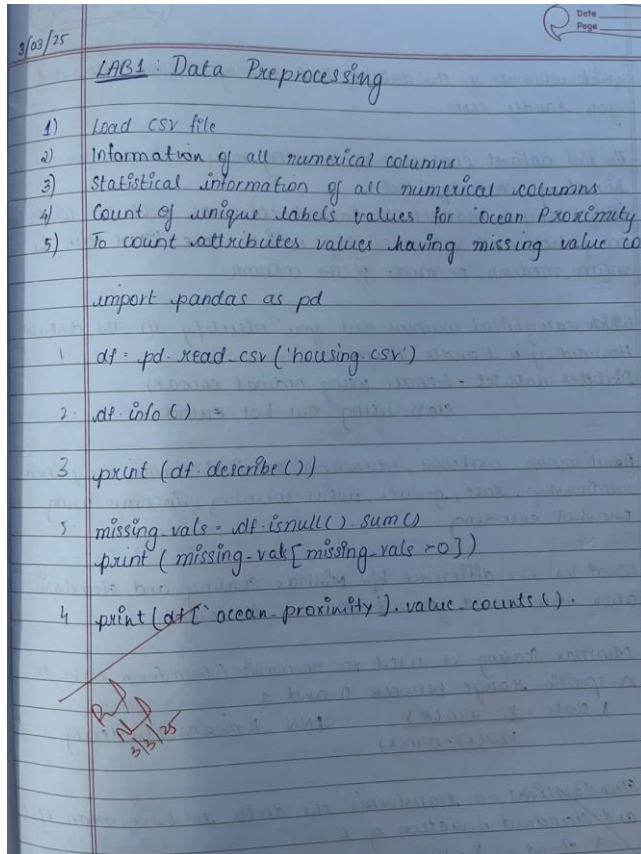 Date
Page
3/03/25
LAB1: Data Preprocessing
1) Load csv file
2) Information of all numerical columns
3) Statistical information of all numerical columns
4) Count of unique labels values for 'Ocean Proximity
5) To count attributes values having missing value co
import pandas as pd
1. df = pd.read_csv('housing.csv')
2. df.info()
3 print (df.describe())
5 missing_vals = df.isnull().sum()
print (missing_vals[missing_vals >0])
4 print(df['ocean_proximity'].value_counts().
3/3/25